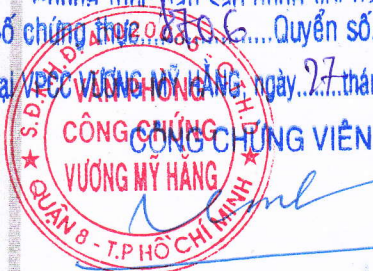 Số chứng thực...8706...Quyển số
tại VPCC VƯƠNG MỸ HẰNG, ngày..27..tháng
CÔNG CHỨNG VIÊN
VĂN PHÒNG
CÔNG CHỨNG
VƯƠNG MỸ HẰNG
QUẬN 8 - T.P HỒ CHÍ MINH